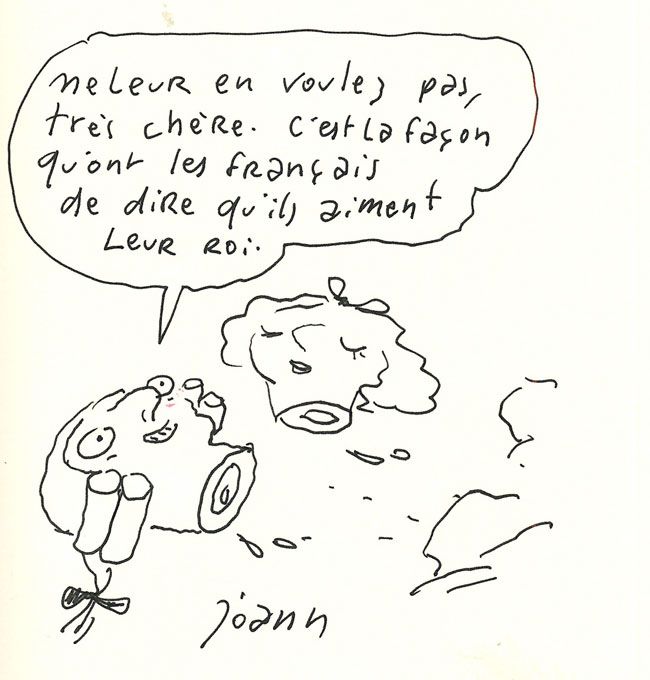 Ne leur en voulez pas,
très chère. C'est la façon
qu'ont les français
de dire qu'ils aiment
leur roi.
joann